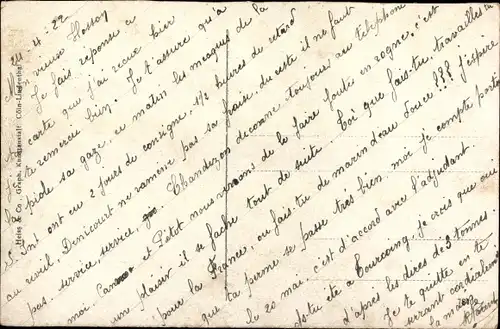 24-4-22
Mon vieux Hosson
Je fais réponse à
ta carte que j'ai reçue hier
je te remercie bien. Je t'assure qu'à
la piole sa gaze, ce matin les mesques de la
S. Int ont eu 2 jours de consigne, 1/2 heures de retard
au réveil. Denicourt ne ramène pas sa fraise, du reste il ne faut
pas, service service, Chandezon décorne toujours au téléphone
moi et Petot nous venons de le faire foutre en rogne, c'est
un plaisir il se fâche tout de suite. Toi que fais-tu, travailles tu
pour la France, ou fais-tu de marin d'eau douce ??? J'espère
que ta perme se passe très bien, moi je compte partir
le 20 mai c'est d'accord avec l'adjudant.
As-tu été à Tourcoing, je crois que oui
d'après les dires de 3 tonnes
Je te quitte en te
serrant cordialement
la main
Heiss & Co., Graph. Kunstanstalt Cöln-Lindenthal